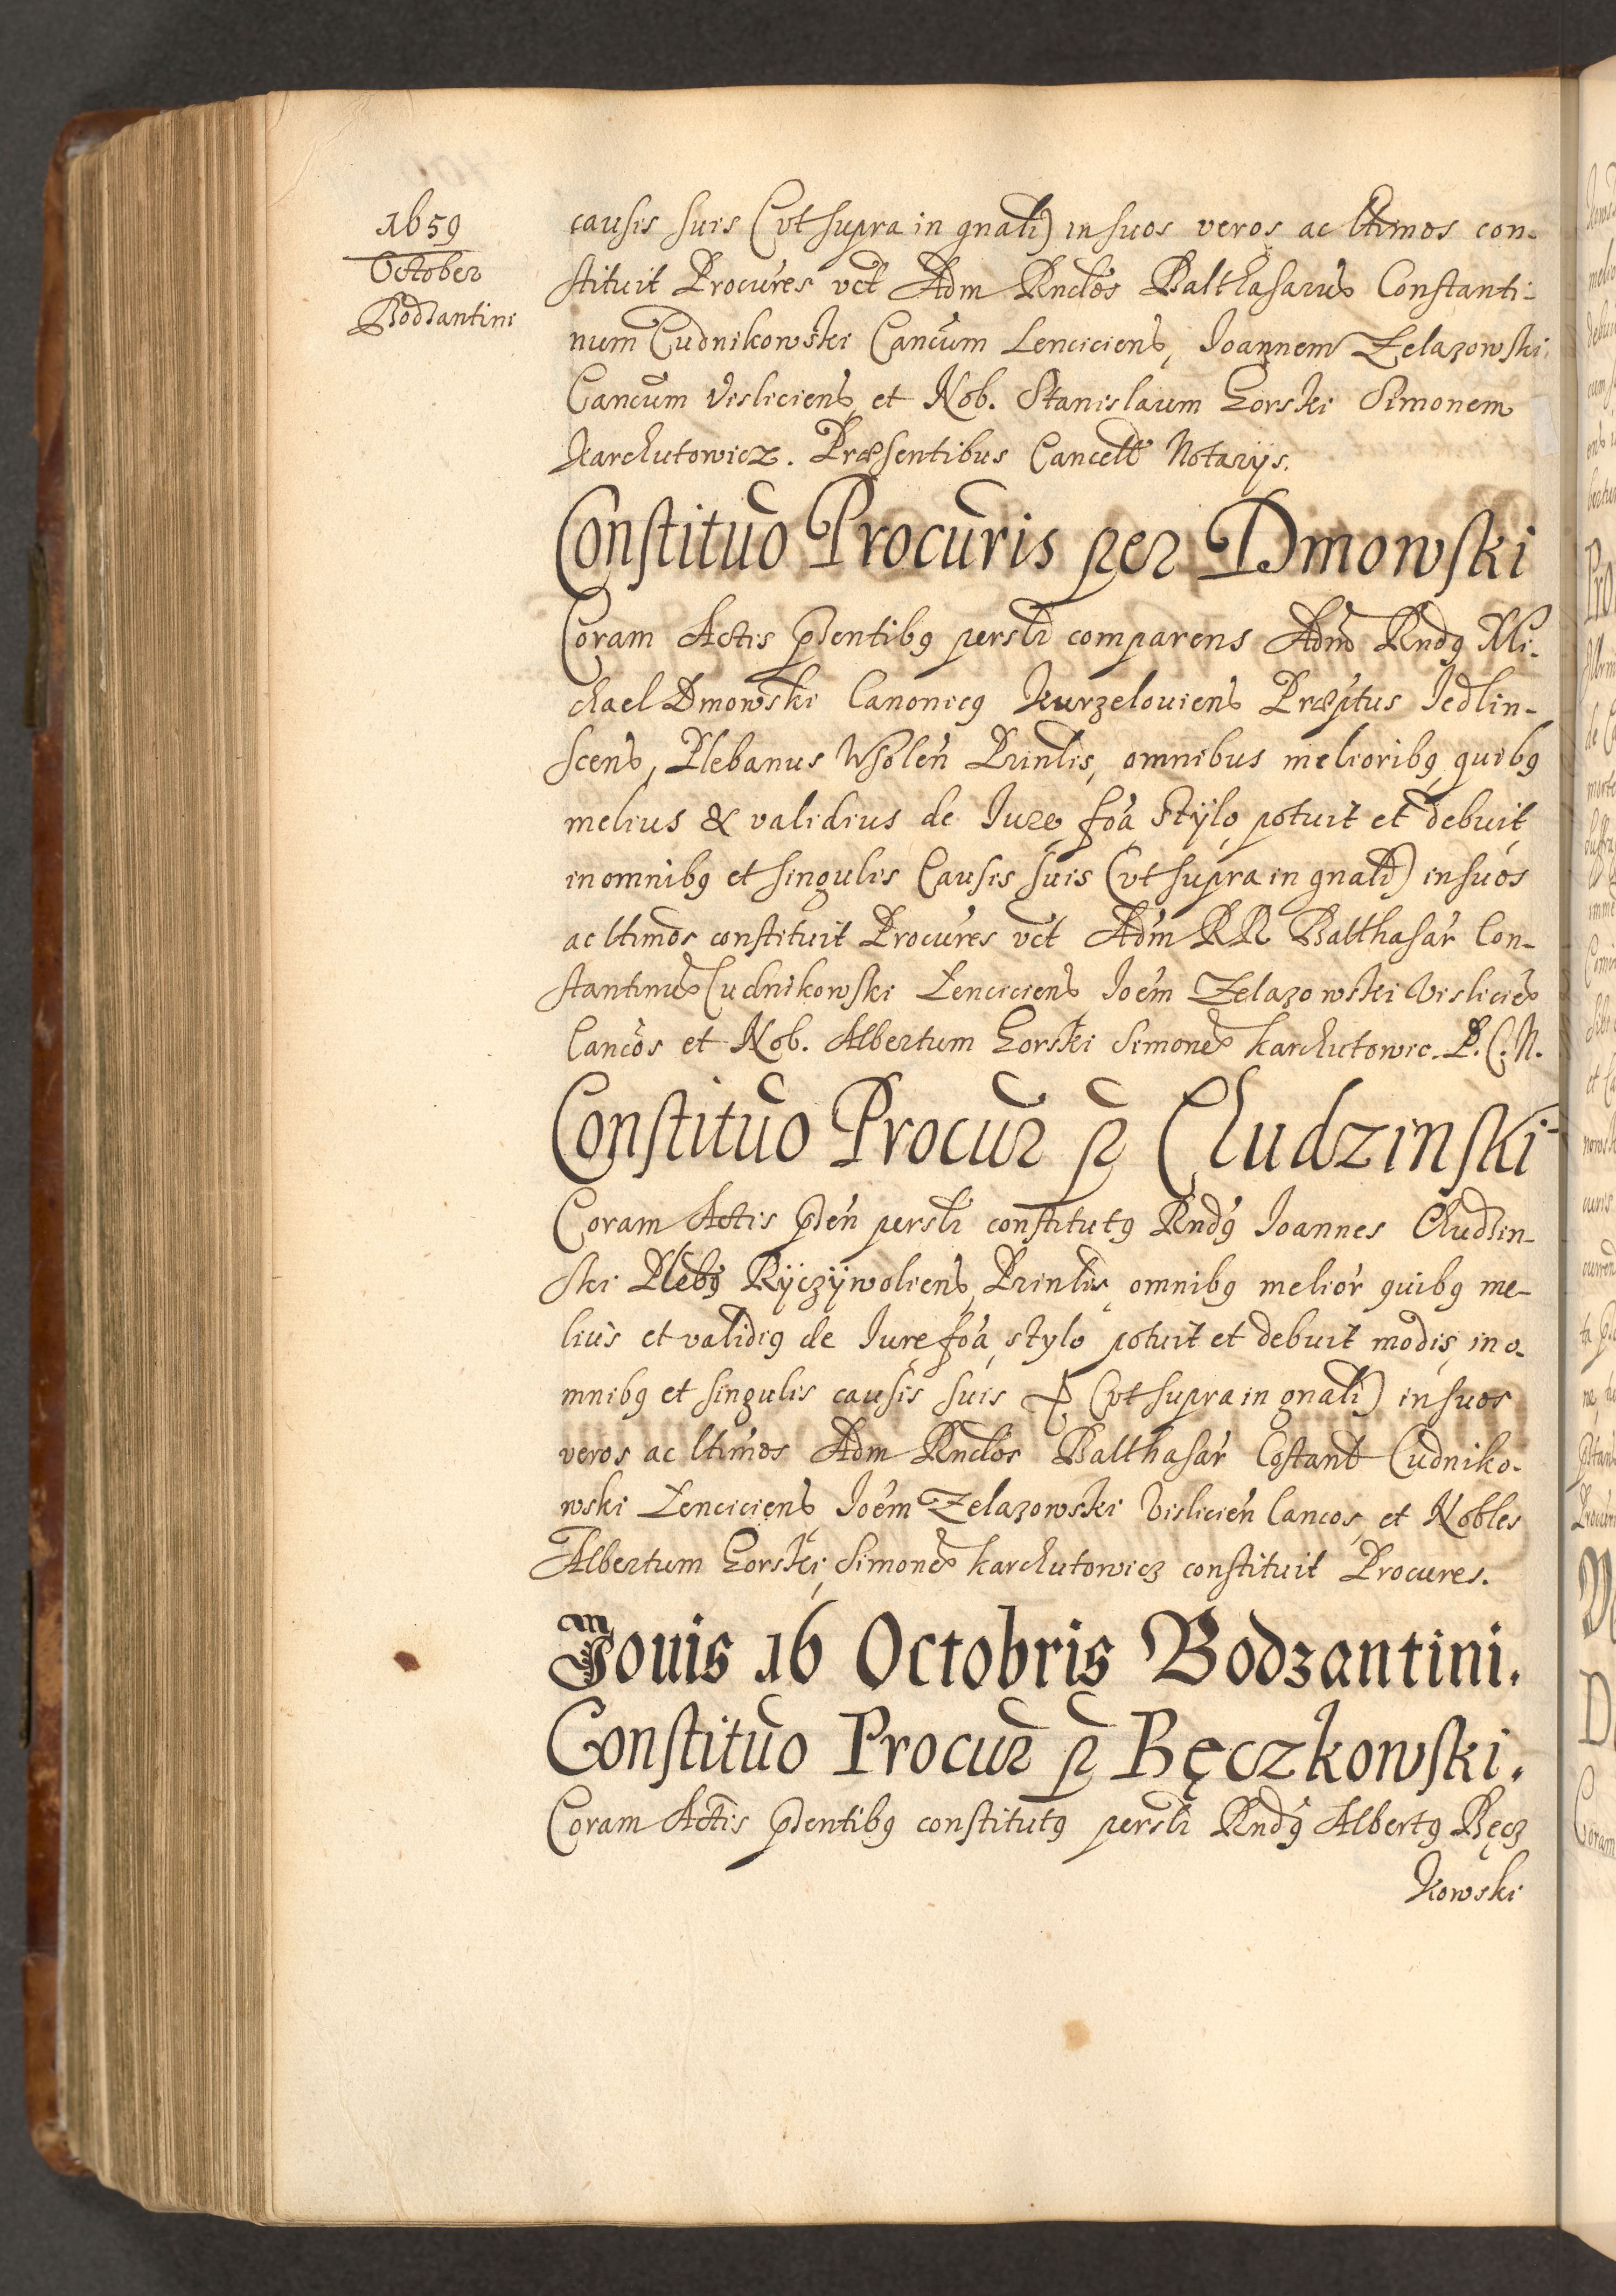 1659
October
Bodzantini
causis suis (vt supra in gnali) in suos veros ac ltimos con-
stituit Procures vct Adm Rndos Balthasarũ Constanti-
num Cudnikowski Cancum Lenciciens, Joannem Zelazowski
Cancum Visliciens, et Nob. Stanislaum Gorski Simonem
Karchutowicz. Præsentibus Cancell Notarÿs.
Constituõ Procuris per Dmowski
Coram Actis pñtibq persli comparens Adm Rndq Mi-
chael Dmowski Canonicq Kurzeloviens Præptus Jedlin-
scens, Plebanus Wsolen Prinlis, omnibus melioribq quibq
melius & validius de Jure, foã stÿlo potuit et debuit
in omnibq et singulis Causis suis (vt supra in gnali) in suos
ac ltimos constituit Procures vct Adm RR Balthasar Con-
stantinũ Cudnikowski Lenciciens Joem Zelazowski Vislicien
Cancos et Nob. Albertum Gorski Simonẽ Karchutowic. P. C. N.
Constituõ Procur p Chudzinski
Coram Actis pñ persli constitutq Rndq Joannes Chudzin-
ski Plebq Rÿczÿwoliens, Prinlis, omnibq melior quibq me-
lius et validiq de Jure foã, stylo potuit et debuit modis, in o-
mnibq et singulis causis suis & (vt supra in gnali) in suos
veros ac ltimos Adm Rndos Balthasar Costant Cudniko-
wski Lenciciens Joem Zelazowski Vislicien Cancos, et Nobles
Albertum Gorski, Simonẽ Karchutowicz constituit Procures.
Jouis 16 Octobris Bodzantini.
Constituõ Procur p Bęczkowski.
Coram Actis pñtibq constitutq persli Rndq Albertq Bęcz
kowski